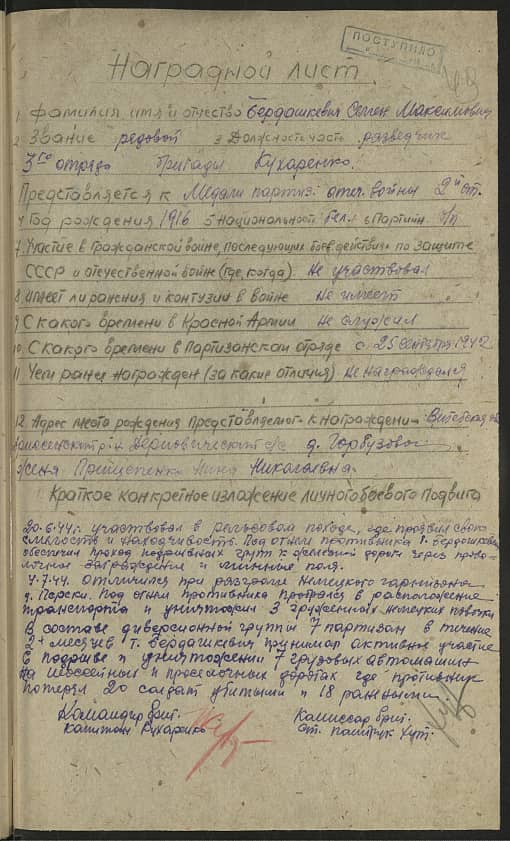 ПОСТУПИЛО
Наградной лист
1 Фамилия имя и отчество Бердашкевич Семен Максимович
2 Звание редовой 3 Должность часть разведчик
3го отряда Бригады Кухаренко.
Представляется к Медали партиз. отеч. войны 2й ст.
4 Год рождения 1916 5 Национальность Бел. 6 Партийн. б/п
7. Участие в Гражданской войне, последующих боев действиях по защите
СССР и отечественной войне (где, когда) Не участвовал
8. Имеет ли ранения и контузии в войне Не имеет
9 С какого времени в Красной Армии Не служил
10. С какого времени в Партизанском отряде с 25 сентября 1942
11 Чем ранее награжден (за какие отличия) Не награждался
12. Адрес места рождения представляемого к награждению Витебская об
р-н Дерновический с/с д. Горбузово
Жена Прищепенко Нина Николаевна.
Краткое конкретное изложение личного боевого подвига
20.6.44 г. участвовал в рельсовом походе, где проявил свою
смелость и находчивость. Под огнем противника т. Бердашкевич
обеспечил проход подрывных групп к железной дороге через прово-
лочные заграждения и минные поля.
4.7.44. отличился при разгроме немецкого гарнизона
д. Под огнем противника пробрался в расположение
транспорта и уничтожил 3 груженных немецких повозки
В составе диверсионной группы 7 партизан в течение
2х месяцев т. Бердашкевич принимал активное участие
в подрыве и уничтожении 7 грузовых автомашин
на шоссейных и проселочных дорогах где противник
потерял 20 солдат убитыми и 18 ранеными.
Командир бриг. Комиссар бриг.
капитан Кухаренко ст. политрук